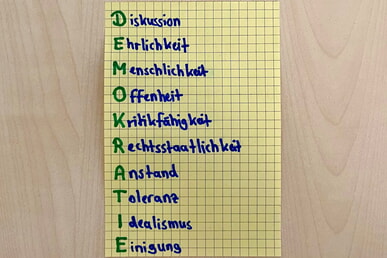 Diskussion
Ehrlichkeit
Menschlichkeit
Offenheit
Kritikfähigkeit
Rechtsstaatlichkeit
Anstand
Toleranz
Idealismus
Einigung